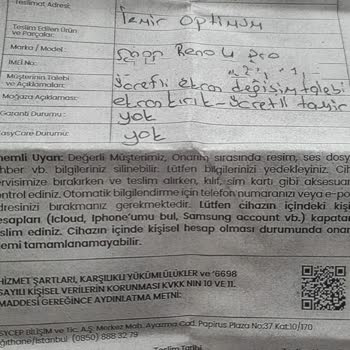 Teslimat Adresi:
İzmir Optimum
Teslim Edilen Ürün
ve Parçalar:
Marka / Model:
Reno 4 Pro
IMEI No:
Müşterinin Talebi
ve Açıklamaları:
Ücretli ekran değişim talebi
Mağaza Açıklaması:
ekran kırık - ücretli tamir
Garanti Durumu:
yok
EasyCare Durumu:
yok
nemli Uyarı: Değerli Müşterimiz, Onarım sırasında resim, ses dosy
hber vb. bilgileriniz silinebilir. Lütfen bilgilerinizi yedekleyiniz. Ci
ervisimize bırakırken ve teslim alırken, kılıf, sim kartı gibi aksesuar
ontrol ediniz. Otomatik bilgilendirme için telefon numaranızı veya e-po
dresinizi bırakmanız gerekmektedir. Lütfen cihazın içindeki kişi
esapları (icloud, Iphone'umu bul, Samsung account vb.) kapatar
slim ediniz. Cihazın içinde kişisel hesap olması durumunda onar
lemi tamamlanamayabilir.
HİZMET ŞARTLARI, KARŞILIKLI YÜKÜMLÜLÜKLER ve '6698
SAYILI KİŞİSEL VERİLERİN KORUNMASI KVKK NIN 10 VE 11.
MADDESİ GEREĞİNCE AYDINLATMA METNİ:
SYCEP BİLİŞİM ve Tic. A.Ş. Merkez Mah. Ayazma Cad. Papirus Plaza No:37 Kat:10/170
ğıthane/İstanbul (0850) 888 32 79
Teslim Tarihi